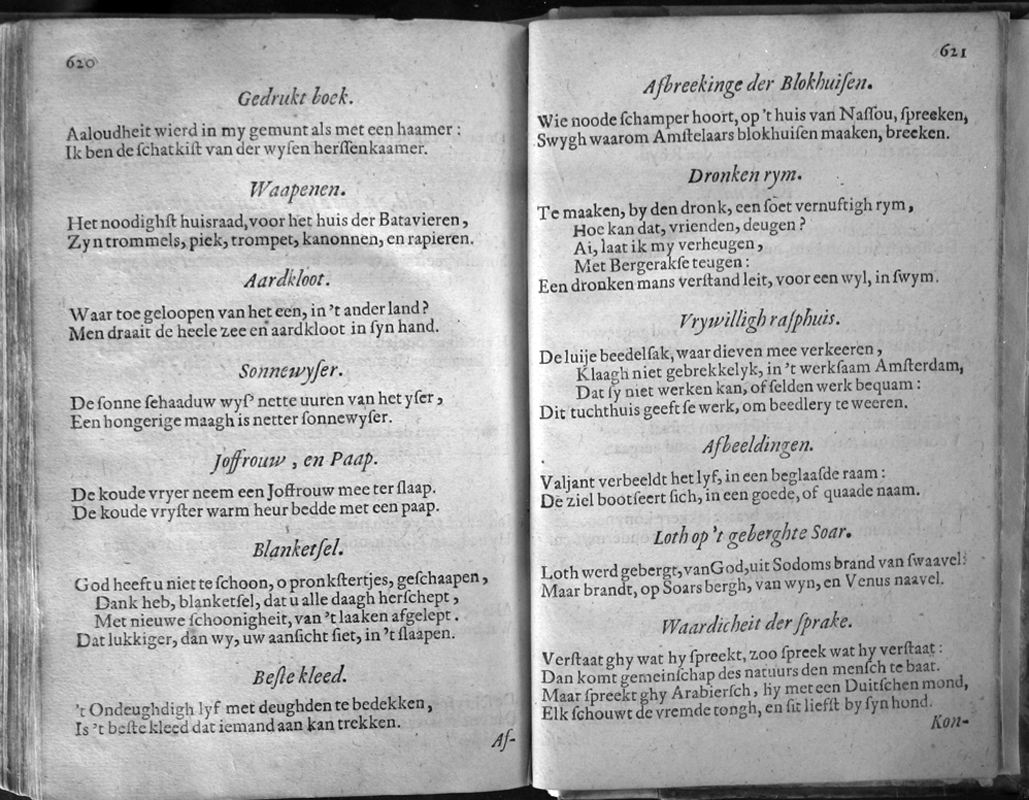 620
Gedrukt boek.
Aaloudheit wierd in my gemunt als met een haamer :
Ik ben de ſchatkiſt van der wyſen herſſenkaamer.
Waapenen.
Het noodighſt huisraad, voor het huis der Batavieren ,
Zyn trommels, piek, trompet, kanonnen, en rapieren.
Aardkloot.
Waar toe geloopen van het een, in 't ander land ?
Men draait de heele zee en aardkloot in ſyn hand.
Sonnewyſer.
De ſonne ſchaaduw wyſt nette uuren van het yſer ,
Een hongerige maagh is netter ſonnewyſer.
Joffrouw , en Paap.
De koude vryer neem een Joffrouw mee ter ſlaap.
De koude vryſter warm heur bedde met een paap.
Blanketſel.
God heeft u niet te ſchoon, o pronkſtertjes, geſchaapen ,
Dank heb, blanketſel, dat u alle daagh herſchept ,
Met nieuwe ſchoonigheit, van 't laaken afgelept .
Dat lukkiger, dan wy, uw aanſicht ſiet, in 't ſlaapen.
Beſte kleed.
't Ondeughdigh lyf met deughden te bedekken ,
Is 't beſte kleed dat iemand aan kan trekken.
Af-
621
Afbreekinge der Blokhuiſen.
Wie noode ſchamper hoort, op 't huis van Naſſou, ſpreeken,
Swygh waarom Amſtelaars blokhuiſen maaken, breeken.
Dronken rym.
Te maaken, by den dronk, een ſoet vernuftigh rym ,
Hoe kan dat, vrienden, deugen ?
Ai, laat ik my verheugen ,
Met Bergerakſe teugen :
Een dronken mans verſtand leit, voor een wyl, in ſwym.
Vrywilligh raſphuis.
De luije beedelſak, waar dieven mee verkeeren ,
Klaagh niet gebrekkelyk, in 't werkſaam Amſterdam,
Dat ſy niet werken kan, of ſelden werk bequam :
Dit tuchthuis geeft ſe werk, om beedlery te weeren.
Afbeeldingen.
Valjant verbeeldt het lyf, in een beglaaſde raam :
De ziel bootſeert ſich, in een goede, of quaade naam.
Loth op 't geberghte Soar.
Loth werd gebergt, van God, uit Sodoms brand van ſwaavel:
Maar brandt, op Soars bergh, van wyn, en Venus naavel.
Waardicheit der ſprake.
Verſtaat ghy wat hy ſpreekt, zoo ſpreek wat hy verſtaat :
Dan komt gemeinſchap des natuurs den menſch te baat.
Maar ſpreekt ghy Arabierſch, hy met een Duitſchen mond,
Elk ſchouwt de vremde tongh, en ſit liefſt by ſyn hond.
Kon-